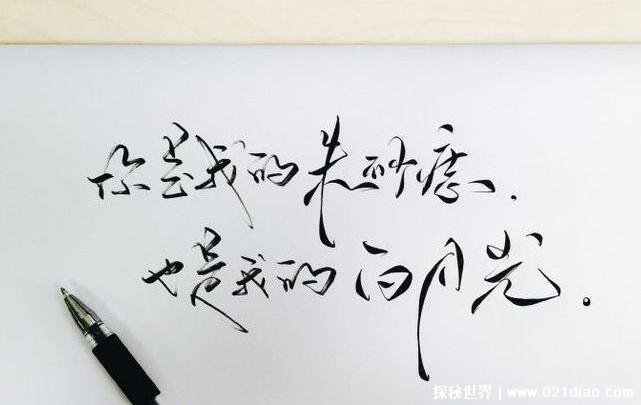 你是我的朱砂痣.
也是我的白月光.
探秘世界 | www.021diao.com